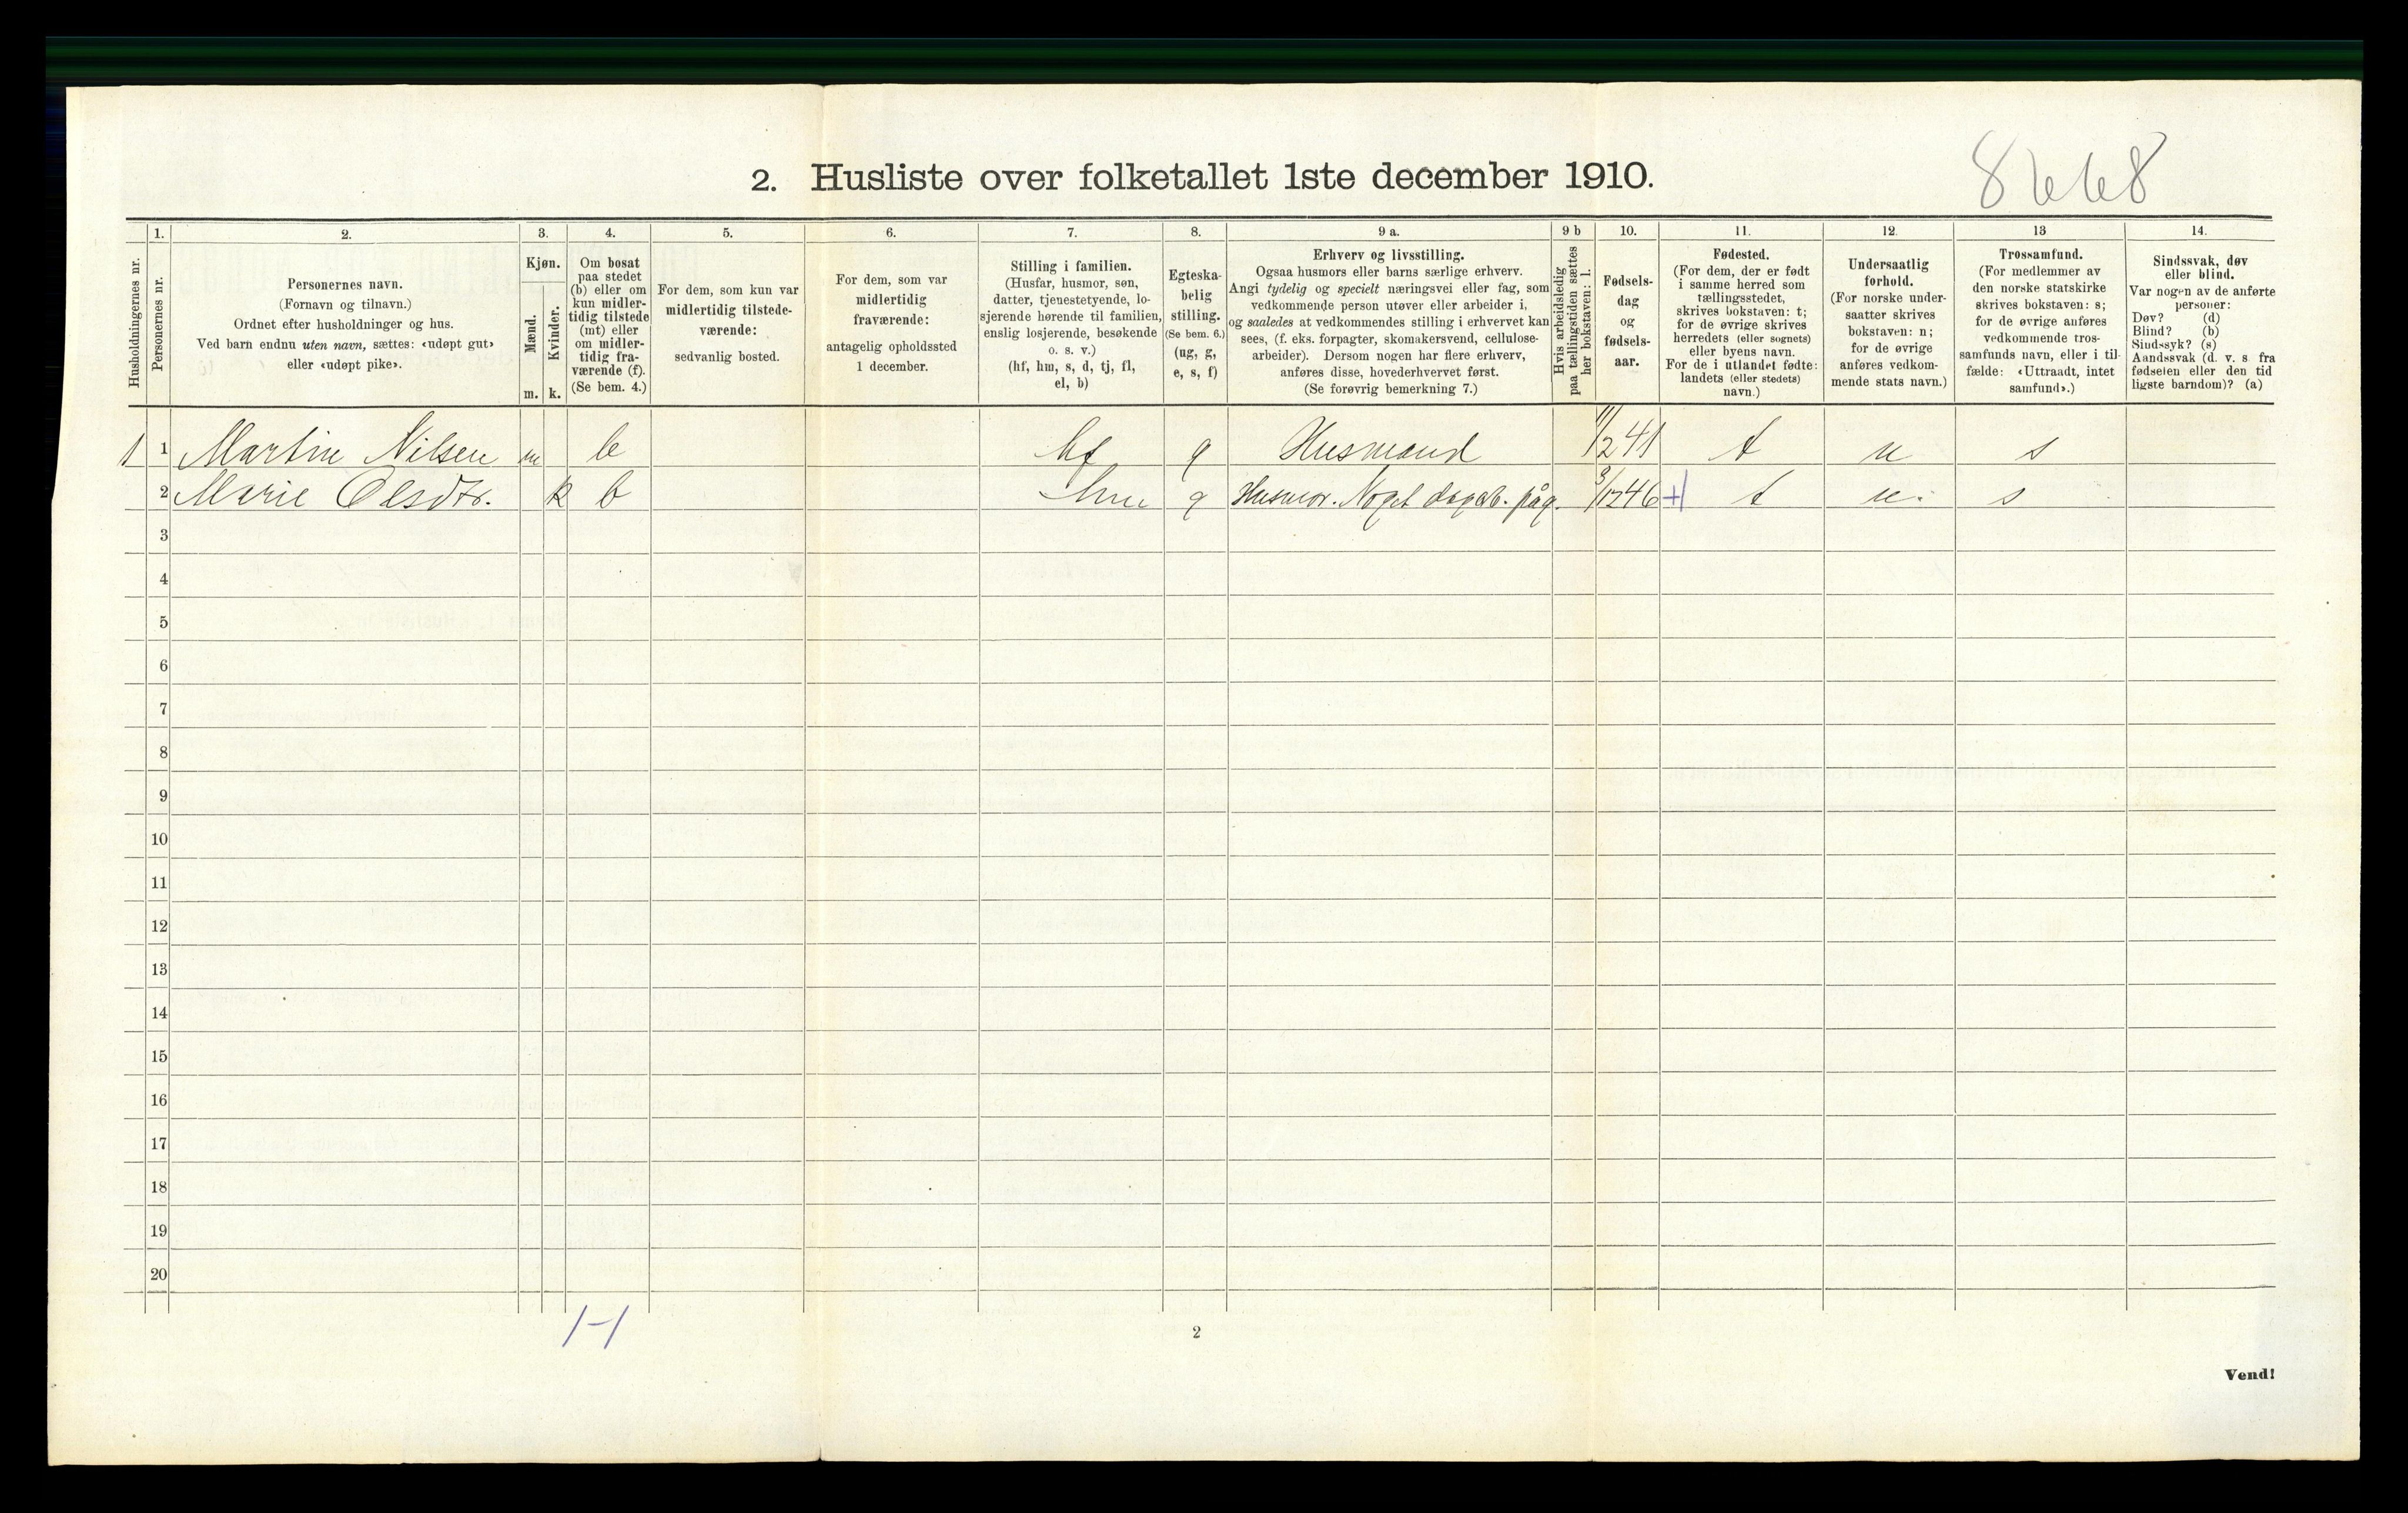 8668
2. Husliste over folketallet 1ste december 1910.
Husholdningernes nr.
1.
Personernes nr.
2.
Personernes navn.
(Fornavn og tilnavn.)
Ordnet efter husholdninger og hus.
Ved barn endnu uten navn, sættes: «udøpt gut»
eller «udøpt pike».
3.
Kjøn.
Mænd.
Kvinder.
m. k.
4.
Om bosat
paa stedet
(b) eller om
kun midler-
tidig tilstede
(mt) eller
om midler-
tidig fra-
værende (f).
(Se bem. 4.)
5.
For dem, som kun var
midlertidig tilstede-
værende:
sedvanlig bosted.
6.
For dem, som var
midlertidig
fraværende:
antagelig opholdssted
1 december.
7.
Stilling i familien.
(Husfar, husmor, søn,
datter, tjenestetyende, lo-
sjerende hørende til familien,
enslig losjerende, besøkende
o. s. v.)
(hf, hm, s, d, tj, fl,
el, b)
8.
Egteska-
belig
stilling.
(Se bem. 6.)
(ug, g,
e, s, f)
9 a.
Erhverv og livsstilling.
Ogsaa husmors eller barns særlige erhverv.
Angi tydelig og specielt næringsvei eller fag, som
vedkommende person utøver eller arbeider i,
og saaledes at vedkommendes stilling i erhvervet kan
sees, (f. eks. forpagter, skomakersvend, cellulose-
arbeider). Dersom nogen har flere erhverv,
anføres disse, hovederhvervet først.
(Se forøvrig bemerkning 7.)
9 b
Hvis arbeidsledig
paa tællingstiden sættes
her bokstaven: l.
10.
Fødsels-
dag
og
fødsels-
aar.
11.
Fødested.
(For dem, der er født
i samme herred som
tællingsstedet,
skrives bokstaven: t;
for de øvrige skrives
herredets (eller sognets)
eller byens navn.
For de i utlandet fødte:
landets (eller stedets)
navn.)
12.
Undersaatlig
forhold.
(For norske under-
saatter skrives
bokstaven: n;
for de øvrige
anføres vedkom-
mende stats navn.)
13
Trossamfund.
(For medlemmer av
den norske statskirke
skrives bokstaven: s;
for de øvrige anføres
vedkommende tros-
samfunds navn, eller i til-
fælde: «Uttraadt, intet
samfund».)
14.
Sindssvak, døv
eller blind.
Var nogen av de anførte
personer:
Døv? (d)
Blind? (b)
Sindssyk? (s)
Aandssvak (d. v. s. fra
fødselen eller den tid
ligste barndom)? (a)
1 1 Martin Nilsen m b hf g Husmand 11/2 41 t n s
2 Marie Olsdtr. k b hm g Husmor. Noget dagarb. på g. 3/12 46 + t n. s
3
4
5
6
7
8
9
10
11
12
13
14
15
16
17
18
19
20
1-1
2
Vend!